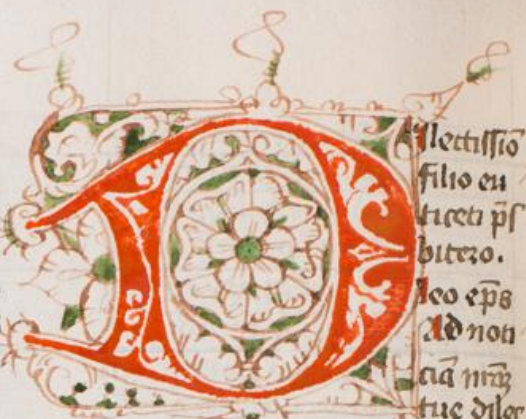 D
ilectissīo
filio eu
ticeti p̄s
bitero.
leo ep̄s
Ad noti
ciā nr̄āz
tue dilec